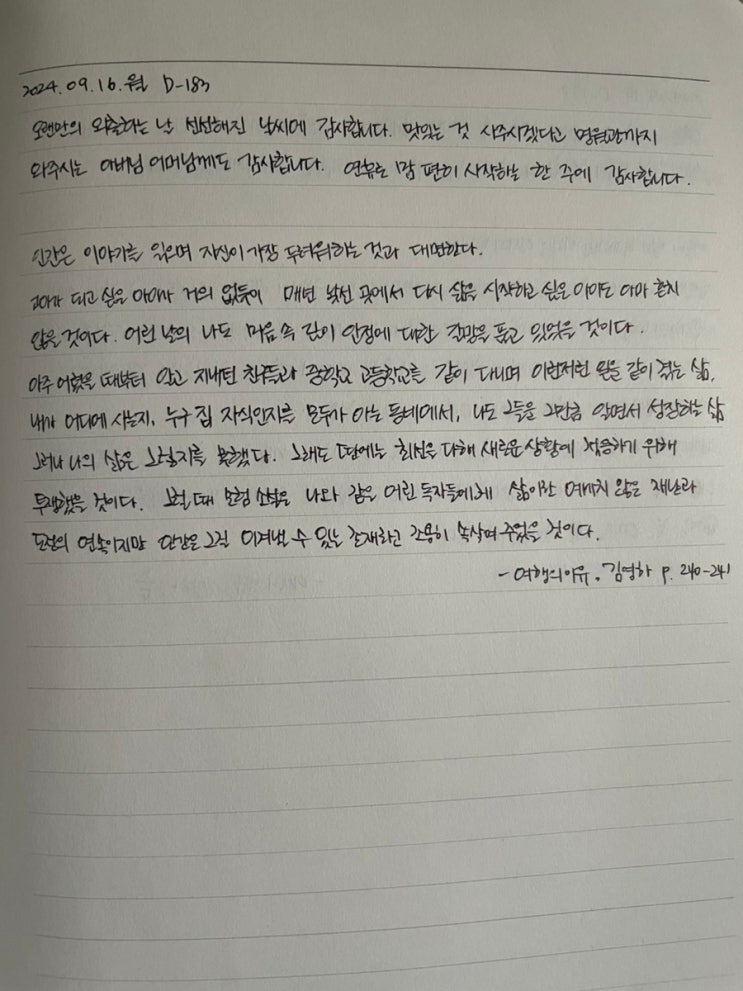 2024.09.16.월 D-183
오랜만의 외출하는 날 선선해진 날씨에 감사합니다. 맛있는 것 사주시겠다고 병원관까지
와주시는 아버님 어머님께도 감사합니다. 연휴로 맘 편히 시작하는 한 주에 감사합니다.
인간은 이야기를 읽으며 자신이 가장 두려워하는 것과 대면한다.
고아가 되고 싶은 아이가 거의 없듯이 매번 낯선 곳에서 다시 삶을 시작하고 싶은 아이도 아마 흔치
않을 것이다. 어린 날의 나도 마음 속 깊이 안정에 대한 갈망을 품고 있었을 것이다.
아주 어렸을 때부터 알고 지내던 친구들과 중학교 고등학교를 같이 다니며 이런저런 일을 같이 겪는 삶,
내가 어디에 사는지, 누구 집 자식인지를 모두가 아는 동네에서, 나도 그들을 그만큼 알면서 성장하는 삶
그러나 나의 삶은 그렇지를 못했다. 그래도 내딴에는 최선을 다해 새로운 상황에 적응하기 위해
투쟁했을 것이다. 그럴 때 모험 소설은 나와 같은 어린 독자들에게 삶이란 예기치 않은 재난과
도전의 연속이지만 인간은 그걸 이겨낼 수 있는 존재라고 조용히 속삭여 주었을 것이다.
- 여행의 이유, 김영하 p. 240-241